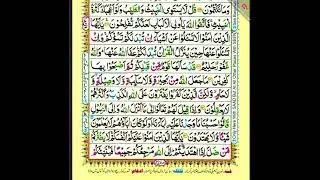 وَمَا تَكْتُمُوْنَ قُلْ لَّا يَسْتَوِى الْخَبِيْثُ وَالطَّيِّبُ وَلَوْ اَعْجَبَكَ كَثْرَةُ
الْخَبِيْثِ فَاتَّقُوا اللّٰهَ يٰۤاُولِى الْاَلْبَابِ لَعَلَّكُمْ تُفْلِحُوْنَ يٰۤاَيُّهَا
الَّذِيْنَ اٰمَنُوْا لَا تَسْـَٔلُوْا عَنْ اَشْيَآءَ اِنْ تُبْدَ لَكُمْ تَسُؤْكُمْ وَاِنْ
تَسْـَٔلُوْا عَنْهَا حِيْنَ يُنَزَّلُ الْقُرْاٰنُ تُبْدَ لَكُمْ عَفَا اللّٰهُ عَنْهَا وَاللّٰهُ
غَفُوْرٌ حَلِيْمٌ قَدْ سَاَلَهَا قَوْمٌ مِّنْ قَبْلِكُمْ ثُمَّ اَصْبَحُوْا بِهَا
كٰفِرِيْنَ مَا جَعَلَ اللّٰهُ مِنْۢ بَحِيْرَةٍ وَّلَا سَآئِبَةٍ وَّلَا وَصِيْلَةٍ وَّلَا
حَامٍ وَّلٰكِنَّ الَّذِيْنَ كَفَرُوْا يَفْتَرُوْنَ عَلَى اللّٰهِ الْكَذِبَ وَاَكْثَرُهُمْ
لَا يَعْقِلُوْنَ وَاِذَا قِيْلَ لَهُمْ تَعَالَوْا اِلٰى مَاۤ اَنْزَلَ اللّٰهُ وَاِلَى الرَّسُوْلِ
قَالُوْا حَسْبُنَا مَا وَجَدْنَا عَلَيْهِ اٰبَآءَنَا اَوَلَوْ كَانَ اٰبَآؤُهُمْ لَا يَعْلَمُوْنَ
شَيْـًٔا وَّلَا يَهْتَدُوْنَ يٰۤاَيُّهَا الَّذِيْنَ اٰمَنُوْا عَلَيْكُمْ اَنْفُسَكُمْ لَا يَضُرُّكُمْ
مَّنْ ضَلَّ اِذَا اهْتَدَيْتُمْ اِلَى اللّٰهِ مَرْجِعُكُمْ جَمِيْعًا فَيُنَبِّئُكُمْ